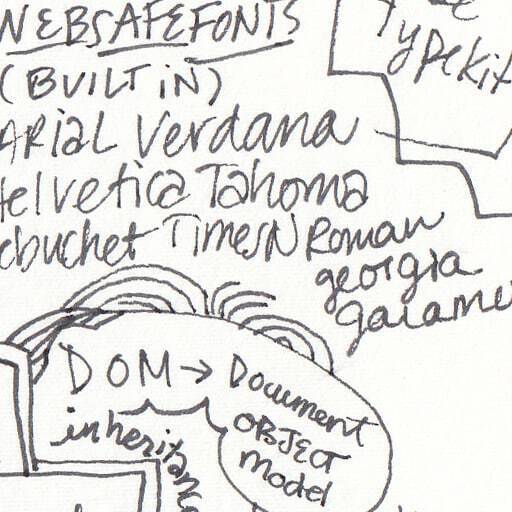 WEBSAFEFONTS
(BUILT iN)
ARiaL Verdana
Helvetica Tahoma
ebuchet TimesN Roman
georgia
garame
Typekit
DOM → Document
OBJECT
Model
inheritance